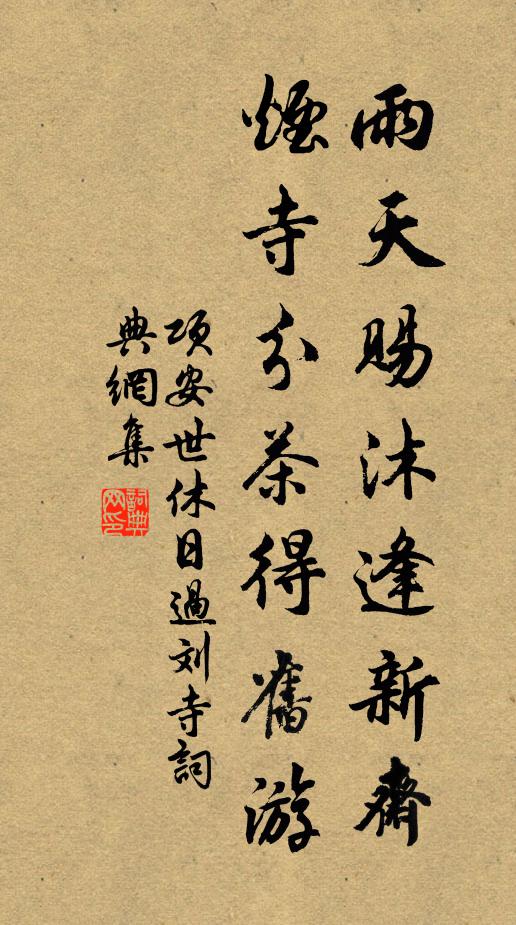 雨天賜沐逢新齋
煙寺分茶得舊游
項安世休日過刘寺詞
典網集
詞典網印